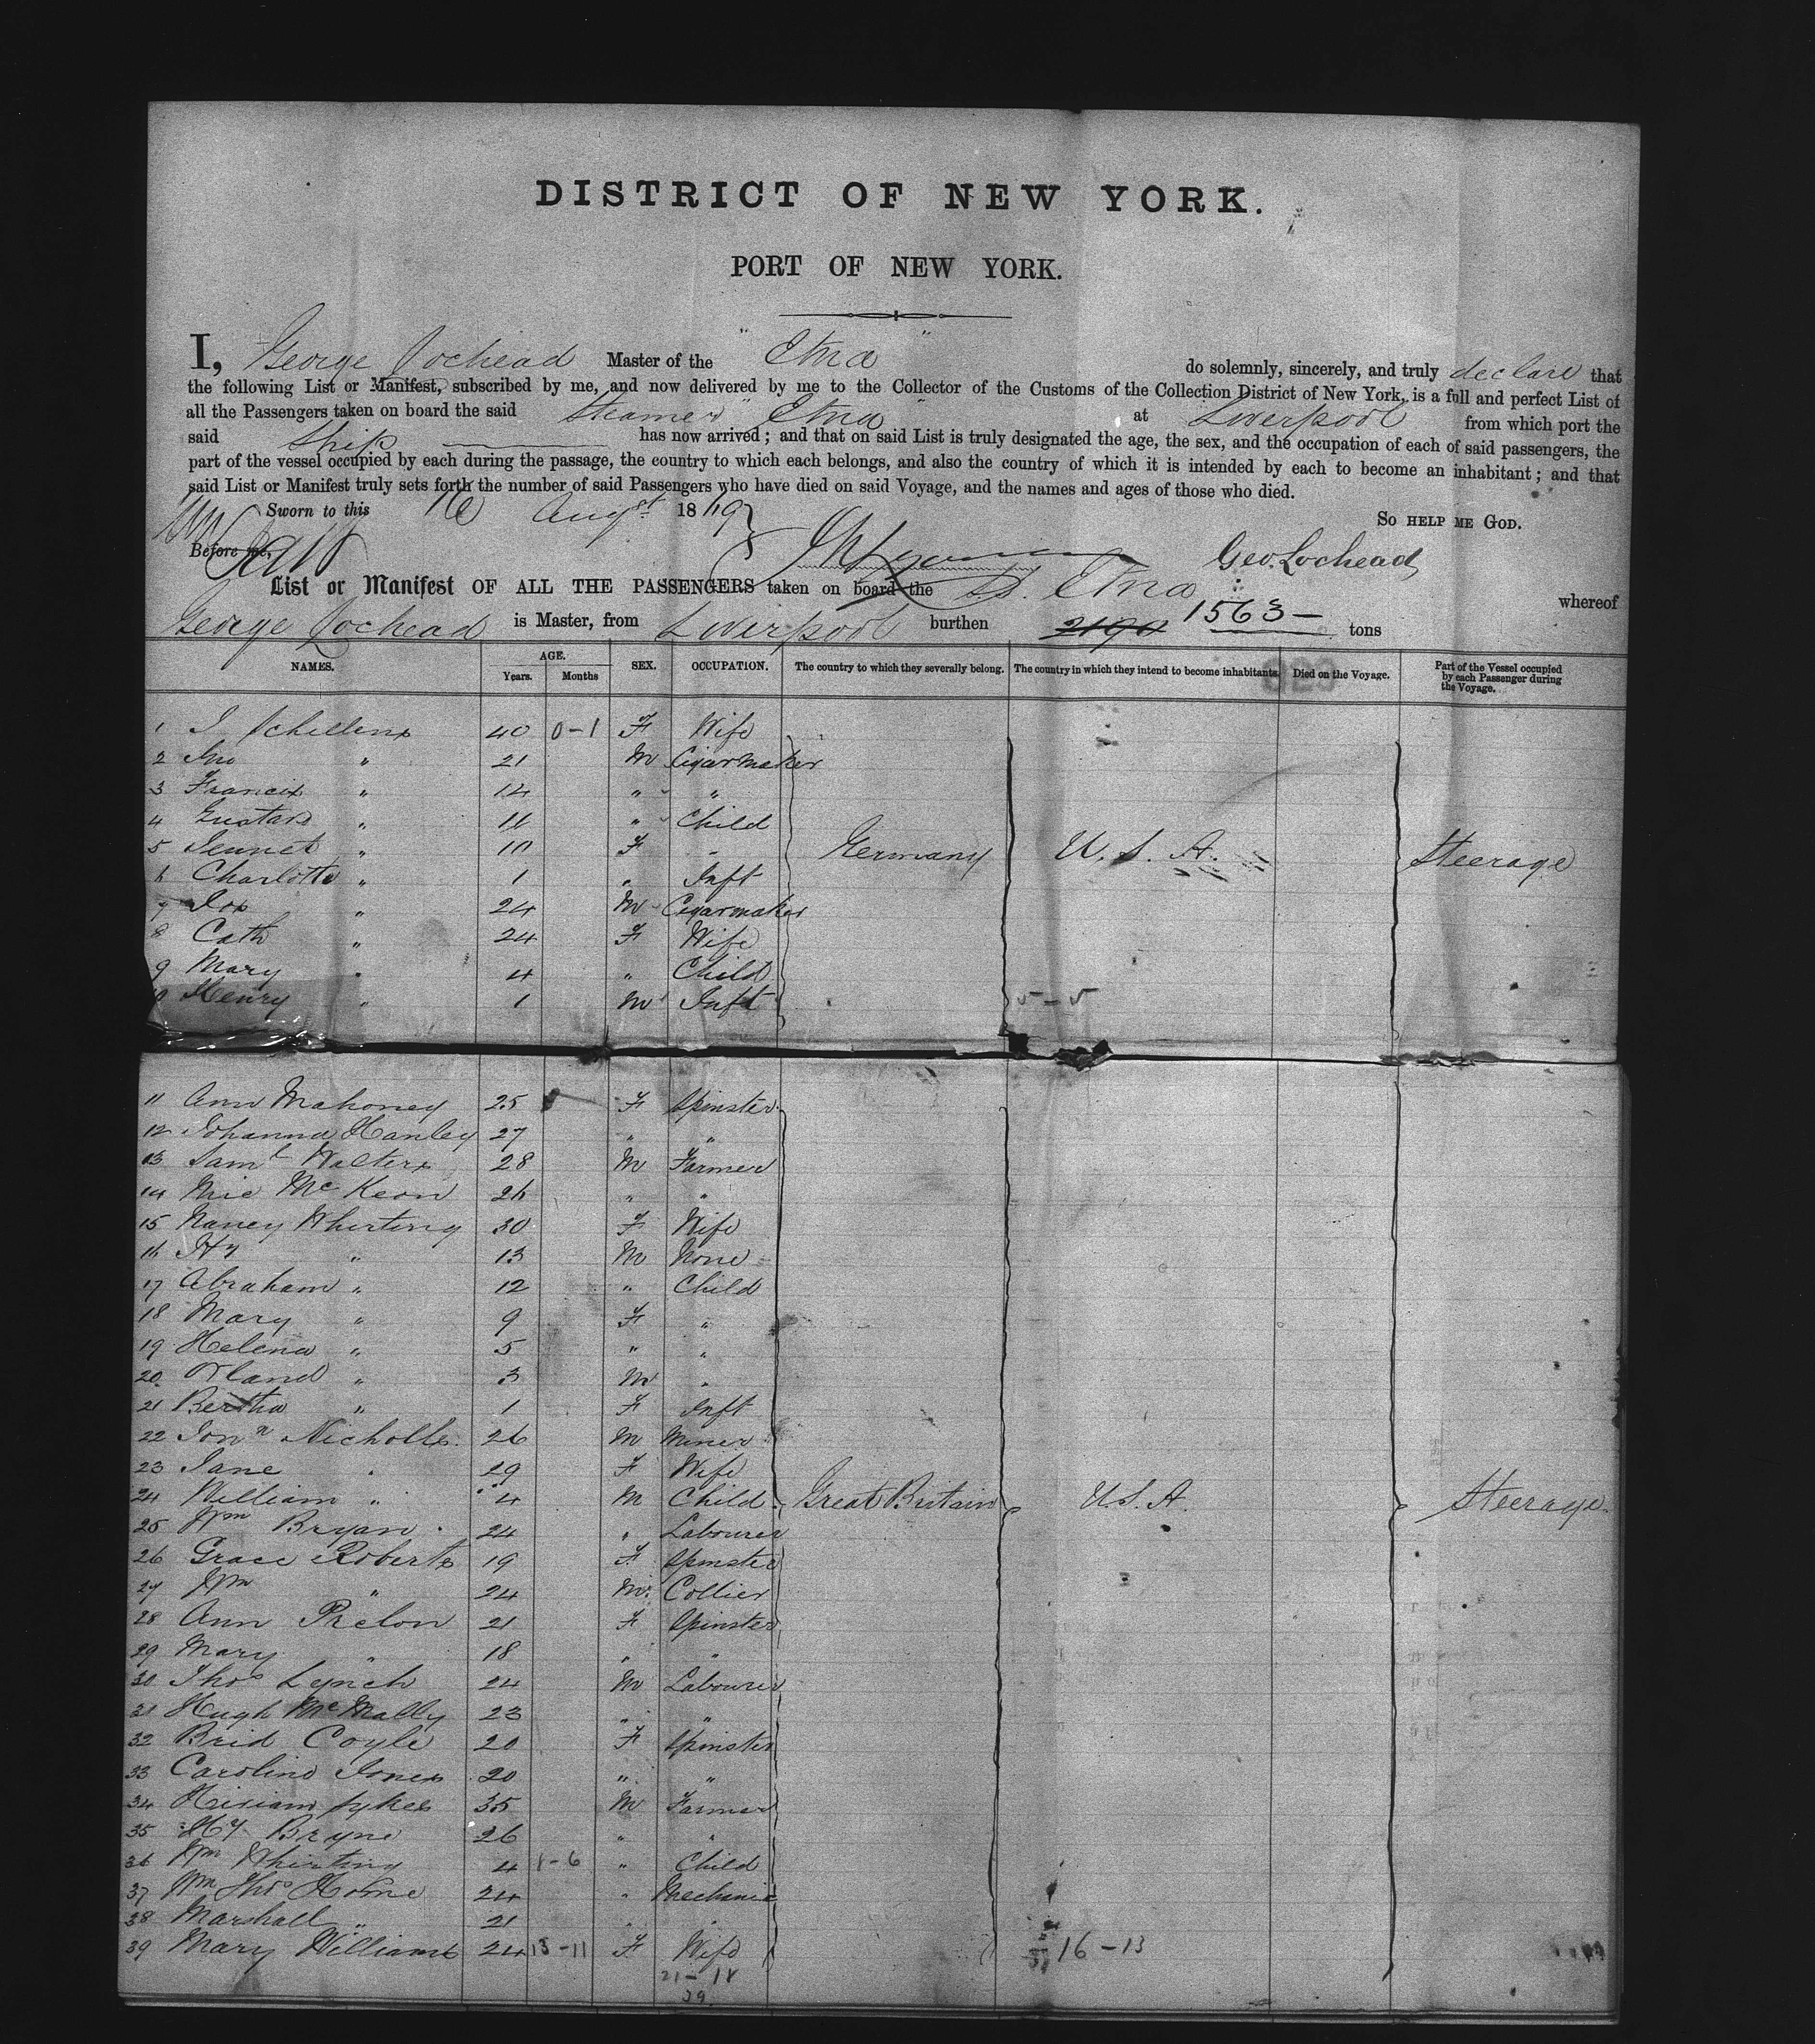 DISTRICT OF NEW YORK.
PORT OF NEW YORK.
I, George Lochead Master of the "Etna" do solemnly, sincerely, and truly declare that
the following List or Manifest, subscribed by me, and now delivered by me to the Collector of the Customs of the Collection District of New York, is a full and perfect List of
all the Passengers taken on board the said Steamer "Etna" at Liverpool from which port the
said Ship has now arrived; and that on said List is truly designated the age, the sex, and the occupation of each of said passengers, the
part of the vessel occupied by each during the passage, the country to which each belongs, and also the country of which it is intended by each to become an inhabitant; and that
said List or Manifest truly sets forth the number of said Passengers who have died on said Voyage, and the names and ages of those who died.
Sworn to this 16 Augst 18 So HELP ME GOD.
Before me, Geo. Lochead
List or Manifest OF ALL THE PASSENGERS taken on board the S.S. Etna whereof
George Lochead is Master, from Liverpool burthen 2190 1563 — tons
NAMES. AGE. Years. Months SEX. OCCUPATION. The country to which they severally belong. The country in which they intend to become inhabitants Died on the Voyage. Part of the Vessel occupied by each Passenger during the Voyage.
1 J Schillens 40 0-1 F Wife
2 Jno " 21 M Cigarmaker
3 Francis " 14 " "
4 Gustav " 11 " Child
5 Jennet " 10 F " Germany U. S. A. Steerage
6 Charlotte " 1 " Inft
7 Jos " 24 M Cigarmaker
8 Cath " 24 F Wife
9 Mary " 4 " Child
10 Henry " 1 M Inft 5-5
11 Ann Mahoney 25 F Spinster
12 Johanna Hanley 27 " "
13 Saml Walters 28 M Farmer
14 Mic McKeon 26 " "
15 Nancy Whirting 30 F Wife
16 Hy " 13 M None
17 Abraham " 12 " Child
18 Mary " 9 F "
19 Helena " 5 " "
20 Orland " 3 M "
21 Bertha " 1 F Inft
22 Jonn Nicholls 26 M Miner
23 Jane " 29 F Wife
24 William " 4 M Child Great Britain U.S.A. Steerage
25 Wm Bryan 24 " Labourer
26 Grace Roberts 19 F Spinster
27 Wm " 24 M Collier
28 Ann Phelon 21 F Spinster
29 Mary " 18 " "
30 Thos Lynch 24 M Labourer
31 Hugh McMally 23 " "
32 Brid Coyle 20 F Spinster
33 Caroline Jones 20 " "
34 Hiriam Sykes 35 M Farmer
35 Hy Bryne 26 " "
36 Wm Whirting 4 1-6 " Child
37 Wm Thos Horne 24 " Mechanic
38 Marshall " 21 " "
39 Mary Williams 24 13-11 F Wife 16-13
21-18
39